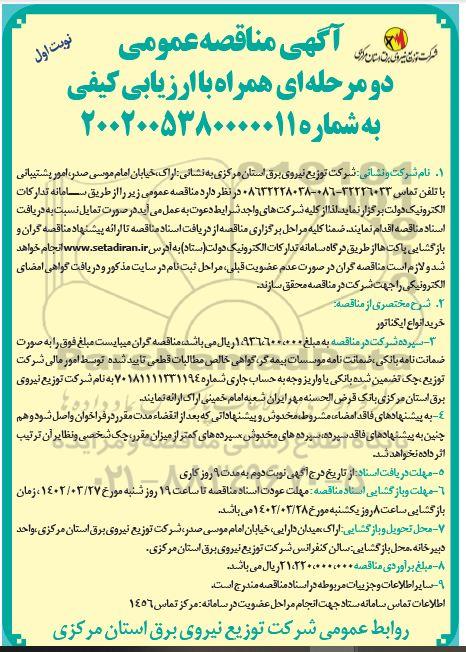 شرکت توزیع نیروی برق استان مرکزی
نوبت اول
آگهی مناقصه عمومی
دو مرحله‌ای همراه با ارزیابی کیفی
به شماره ۲۰۰۲۰۰۵۳۸۰۰۰۰۰۱۱
۱. نام شرکت و نشانی: شرکت توزیع نیروی برق استان مرکزی به نشانی: اراک، خیابان امام موسی صدر، امور پشتیبانی
با تلفن تماس ۳۲۲۲۶۰۲۳-۰۸۶-۰۸۶۳۲۲۲۸۰۳۸ در نظر دارد مناقصه عمومی زیر را از طریق سامانه تدارکات
الکترونیک دولت برگزار نماید لذا از کلیه شرکت های واجد شرایط دعوت به عمل می آید در صورت تمایل نسبت به دریافت
اسناد مناقصه اقدام نمایند. ضمنا کلیه مراحل برگزاری مناقصه از دریافت اسناد مناقصه تا ارائه پیشنهاد مناقصه گران و
بازگشایی پاکت ها از طریق درگاه سامانه تدارکات الکترونیک دولت (ستاد) به آدرس www.setadiran.ir انجام خواهد
شد و لازم است مناقصه گران در صورت عدم عضویت قبلی، مراحل ثبت نام در سایت مذکور و دریافت گواهی امضای
الکترونیکی را جهت شرکت در مناقصه محقق سازند.
۲. شرح مختصری از مناقصه:
خرید انواع ایگناتور
۳-سپرده شرکت در مناقصه به مبلغ ۱،۹۳۶،۶۰۰،۰۰۰ ریال می باشد، مناقصه گران میبایست مبلغ فوق را به صورت
ضمانت نامه بانکی، ضمانت نامه موسسات بیمه گر، گواهی خالص مطالبات قطعی تایید شده توسط امور مالی شرکت
توزیع، چک تضمین شده بانکی یا واریز وجه به حساب جاری شماره ۷۰۱۸۱۱۱۱۳۳۱۱۹۴ به نام شرکت توزیع نیروی
برق استان مرکزی بانک قرض الحسنه مهر ایران شعبه امام خمینی اراک ارائه نمایند.
۴-به پیشنهادهای فاقد امضاء، مشروط، مخدوش و پیشنهاداتی که بعد از انقضاء مدت مقرر در فراخوان واصل شود و هم
چنین به پیشنهادهای فاقد سپرده، سپرده های مخدوش، سپرده های کمتر از میزان مقرر، چک شخصی و نظایر آن ترتیب
اثر داده نخواهد شد.
۵-مهلت دریافت اسناد: از تاریخ درج آگهی نوبت دوم به مدت ۹ روز کاری
۶-مهلت و بازگشایی اسناد مناقصه: مهلت عودت اسناد مناقصه تا ساعت ۱۹ روز شنبه مورخ ۱۴۰۲/۰۳/۲۷، زمان
بازگشایی ساعت ۸ روز یکشنبه مورخ ۱۴۰۲/۰۳/۲۸ می باشد.
۷-محل تحویل و بازگشایی: اراک، میدان دارایی، خیابان امام موسی صدر، شرکت توزیع نیروی برق استان مرکزی، واحد
دبیرخانه. محل بازگشایی: سالن کنفرانس شرکت توزیع نیروی برق استان مرکزی.
۸-مبلغ برآوردی مناقصه ۲۱،۲۲۰،۰۰۰،۰۰۰ ریال می باشد.
۹-سایر اطلاعات و جزییات مربوطه در اسناد مناقصه مندرج است.
اطلاعات تماس سامانه ستاد جهت انجام مراحل عضویت در سامانه: مرکز تماس ۱۴۵۶
روابط عمومی شرکت توزیع نیروی برق استان مرکزی